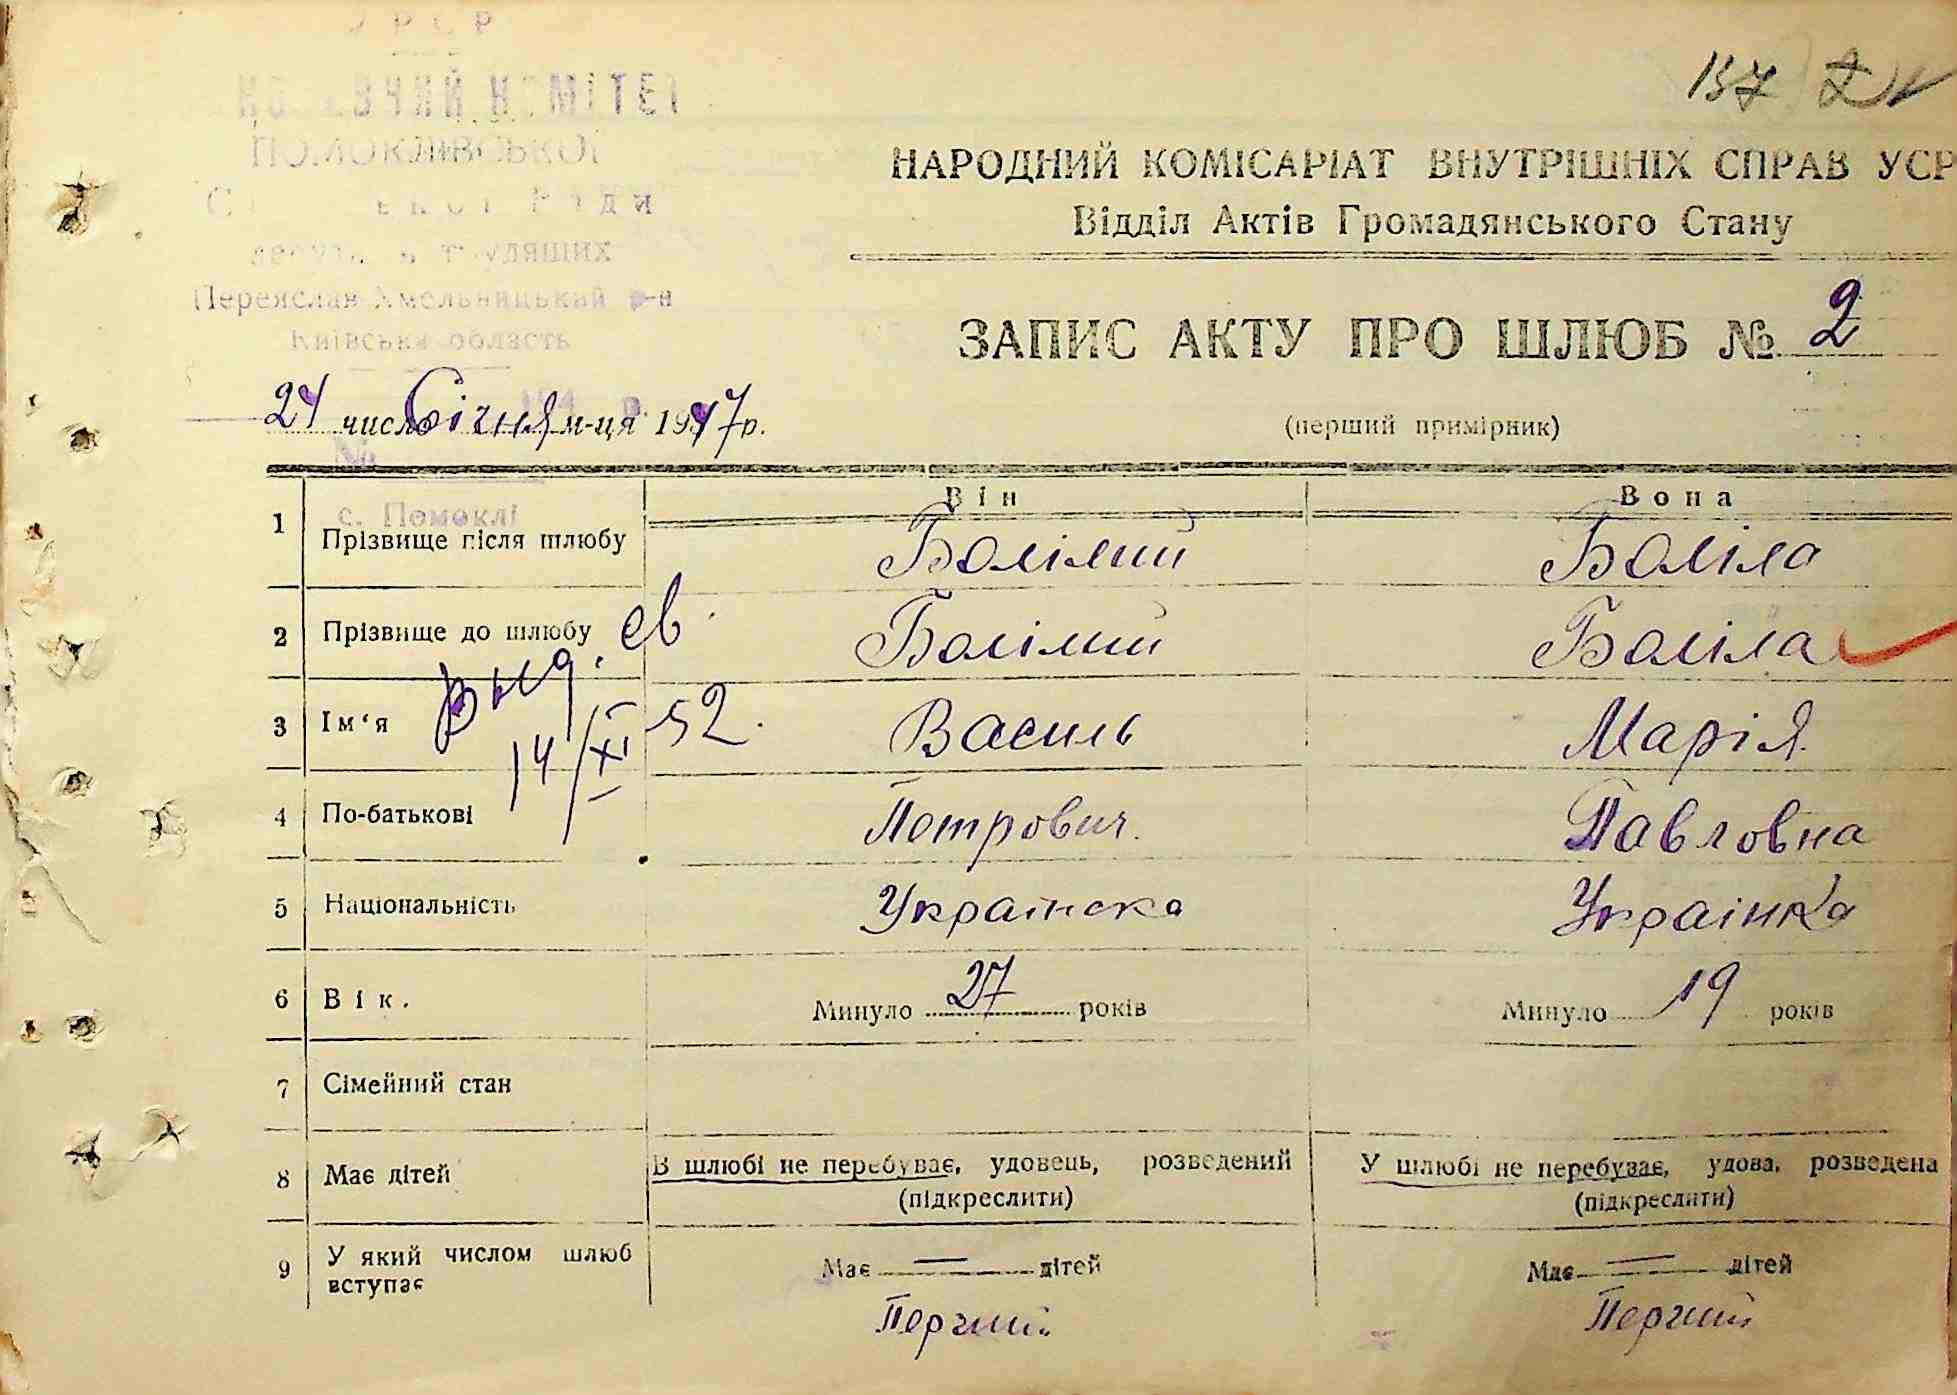 УРСР
ВИКОНАВЧИЙ КОМІТЕТ
ПОМОКЛІВСЬКОЇ
Сільської Ради
депутатів трудящих
Переяслав-Хмельницький р-н
Київська область
194 р.
№
с. Помоклі
137
НАРОДНИЙ КОМІСАРІАТ ВНУТРІШНІХ СПРАВ УСР
Відділ Актів Громадянського Стану
ЗАПИС АКТУ ПРО ШЛЮБ № 2
(перший примірник)
24 число Січня м-ця 1947 р.
Він Вона
1 Прізвище після шлюбу Болілий Боліла
2 Прізвище до шлюбу Болілий Боліла
Выд. св.
14/XI 52.
3 Ім‘я Василь Марія
4 По-батькові Петрович. Павловна
5 Національність Українска Українка
6 Вік. Минуло 27 років Минуло 19 років
7 Сімейний стан
8 Має дітей В шлюбі не перебуває, удовець, розведений У шлюбі не перебуває, удова, розведена
(підкреслити) (підкреслити)
9 У який числом шлюб вступає Має — дітей Має — дітей
Перчий Перчий